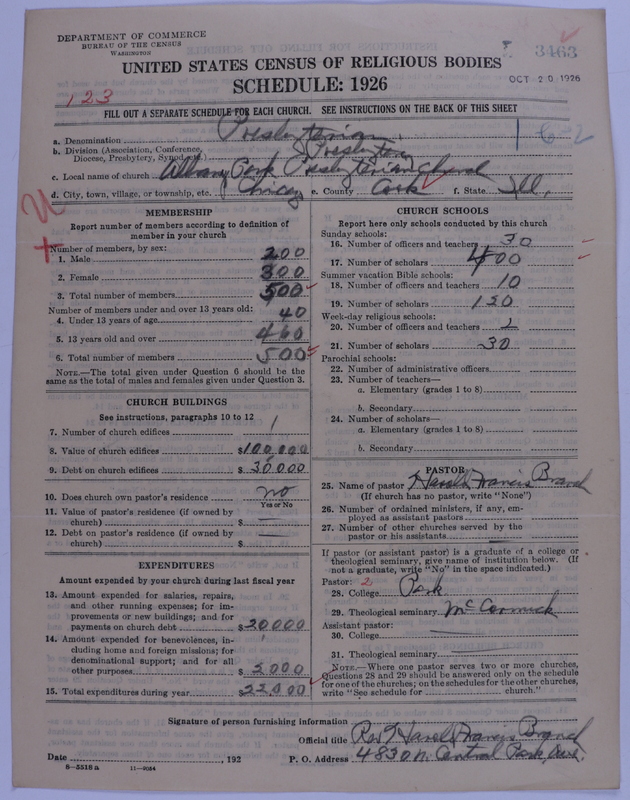 DEPARTMENT OF COMMERCE
BUREAU OF THE CENSUS
WASHINGTON
3463
UNITED STATES CENSUS OF RELIGIOUS BODIES
SCHEDULE: 1926
OCT 20 1926
123
FILL OUT A SEPARATE SCHEDULE FOR EACH CHURCH. SEE INSTRUCTIONS ON THE BACK OF THIS SHEET
a. Denomination Presbyterian
1 6-2
b. Division (Association, Conference, Diocese, Presbytery, Synod, etc.) Presbytery
c. Local name of church Albany Park Presbyterian Church
d. City, town, village, or township, etc. Chicago e. County Cook f. State Ill.
MEMBERSHIP
Report number of members according to definition of
member in your church
Number of members, by sex:
1. Male 200
2. Female 300
3. Total number of members 500
Number of members under and over 13 years old:
4. Under 13 years of age 40
5. 13 years old and over 460
6. Total number of members 500
NOTE.—The total given under Question 6 should be
same as the total of males and females given under Question 3.
CHURCH BUILDINGS
See instructions, paragraphs 10 to 12
7. Number of church edifices 1
8. Value of church edifices $100,000
9. Debt on church edifices $30,000
10. Does church own pastor's residence no
Yes or No
11. Value of pastor's residence (if owned by
church) $
12. Debt on pastor's residence (if owned by
church) $
EXPENDITURES
Amount expended by your church during last fiscal year
13. Amount expended for salaries, repairs,
and other running expenses; for im-
provements or new buildings; and for
payments on church debt $20,000
14. Amount expended for benevolences, in-
cluding home and foreign missions; for
denominational support; and for all
other purposes $2,000
15. Total expenditures during year $22,000
CHURCH SCHOOLS
Report here only schools conducted by this church
Sunday schools:
16. Number of officers and teachers 30
17. Number of scholars 400
Summer vacation Bible schools:
18. Number of officers and teachers 10
19. Number of scholars 120
Week-day religious schools:
20. Number of officers and teachers 2
21. Number of scholars 30
Parochial schools:
22. Number of administrative officers
23. Number of teachers—
a. Elementary (grades 1 to 8)
b. Secondary
24. Number of scholars—
a. Elementary (grades 1 to 8)
b. Secondary
PASTOR
25. Name of pastor Harold Francis Branch
(If church has no pastor, write "None")
26. Number of ordained ministers, if any, em-
ployed as assistant pastors
27. Number of other churches served by the
pastor or his assistants
If pastor (or assistant pastor) is a graduate of a college or
theological seminary, give name of institution below. (If
not a graduate, write "No" in the space indicated.)
Pastor: 2
28. College Park
29. Theological seminary McCormick
Assistant pastor:
30. College
31. Theological seminary
NOTE.—Where one pastor serves two or more churches,
Questions 28 and 29 should be answered only on the schedule
for one of the churches; on the schedules for the other churches,
write "See schedule for church."
Signature of person furnishing information
Official title Rev Harold Francis Branch
Date , 192 P. O. Address 4830 N. Central Park Ave.
8-5518 a 11-9064